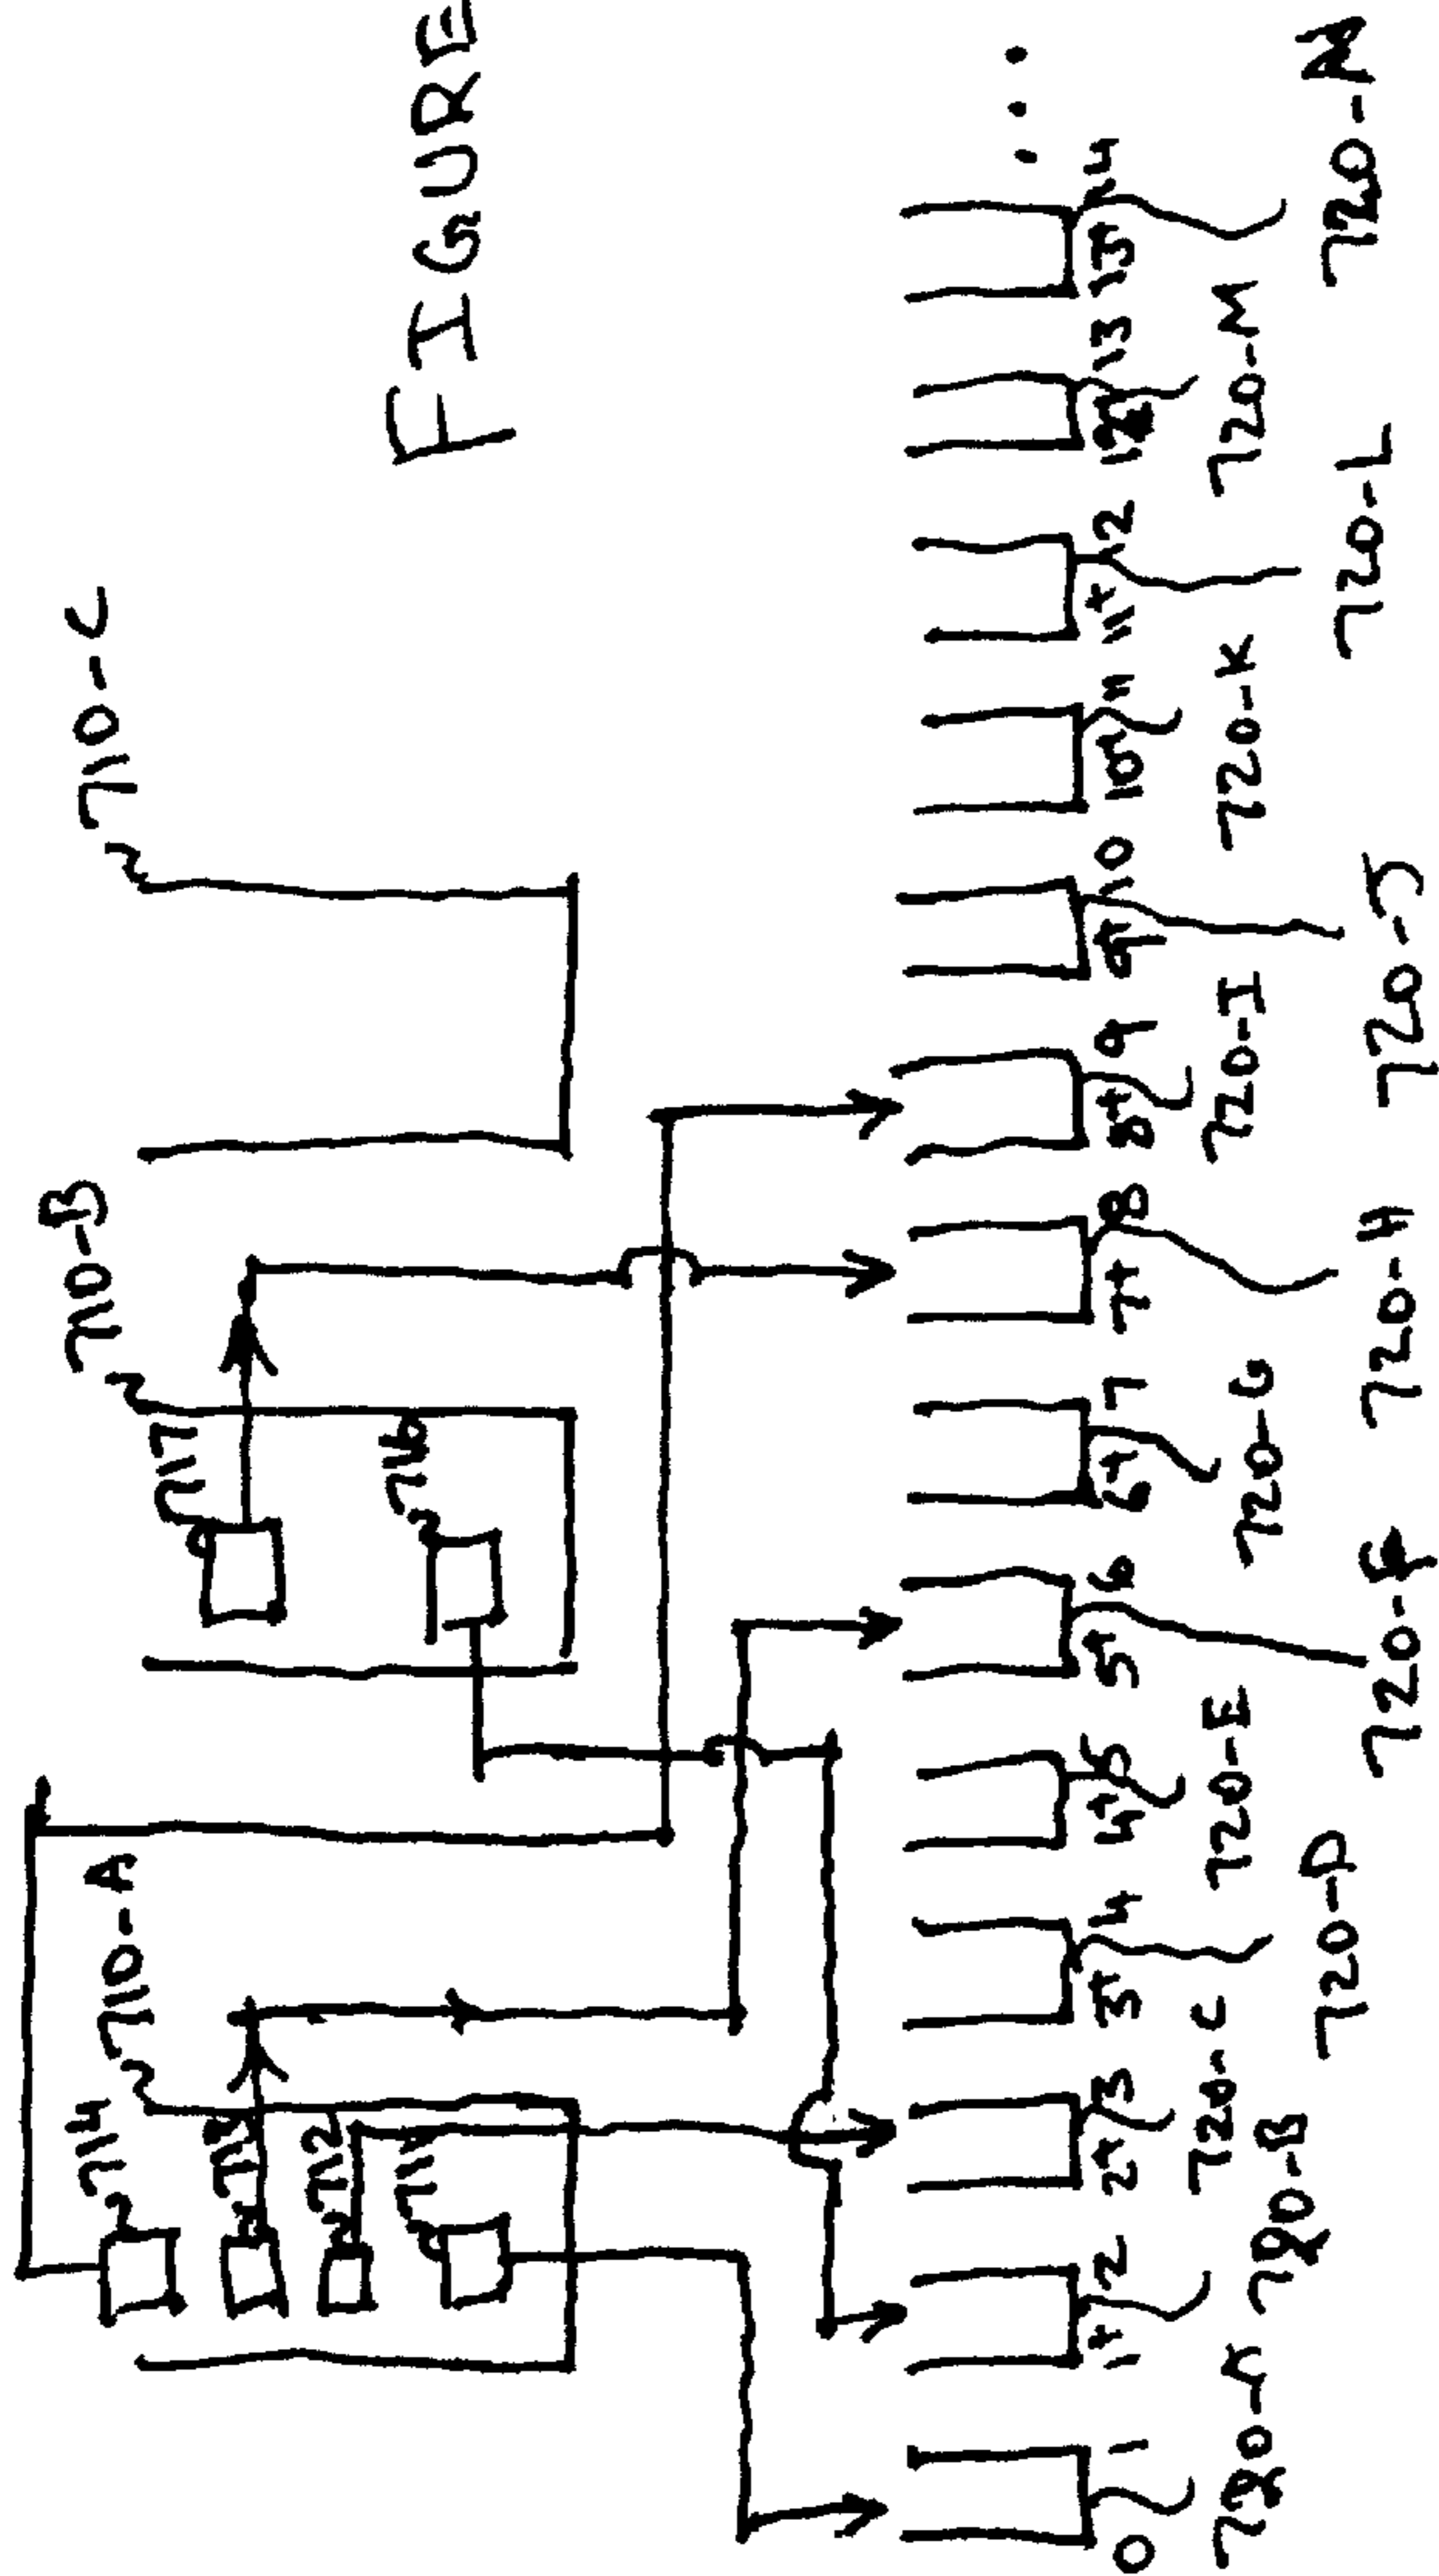 FIGURE
710-A
710-B
710-C
714
712
717
716
0 1
1+ 2
2+ 3
3+ 4
4+ 5
5+ 6
6+ 7
7+ 8
8+ 9
9+ 10
10+ 11
11+ 12
12+ 13
13+ 14
...
720-B
720-C
720-D
720-E
720-F
720-G
720-H
720-I
720-J
720-K
720-L
720-M
720-N